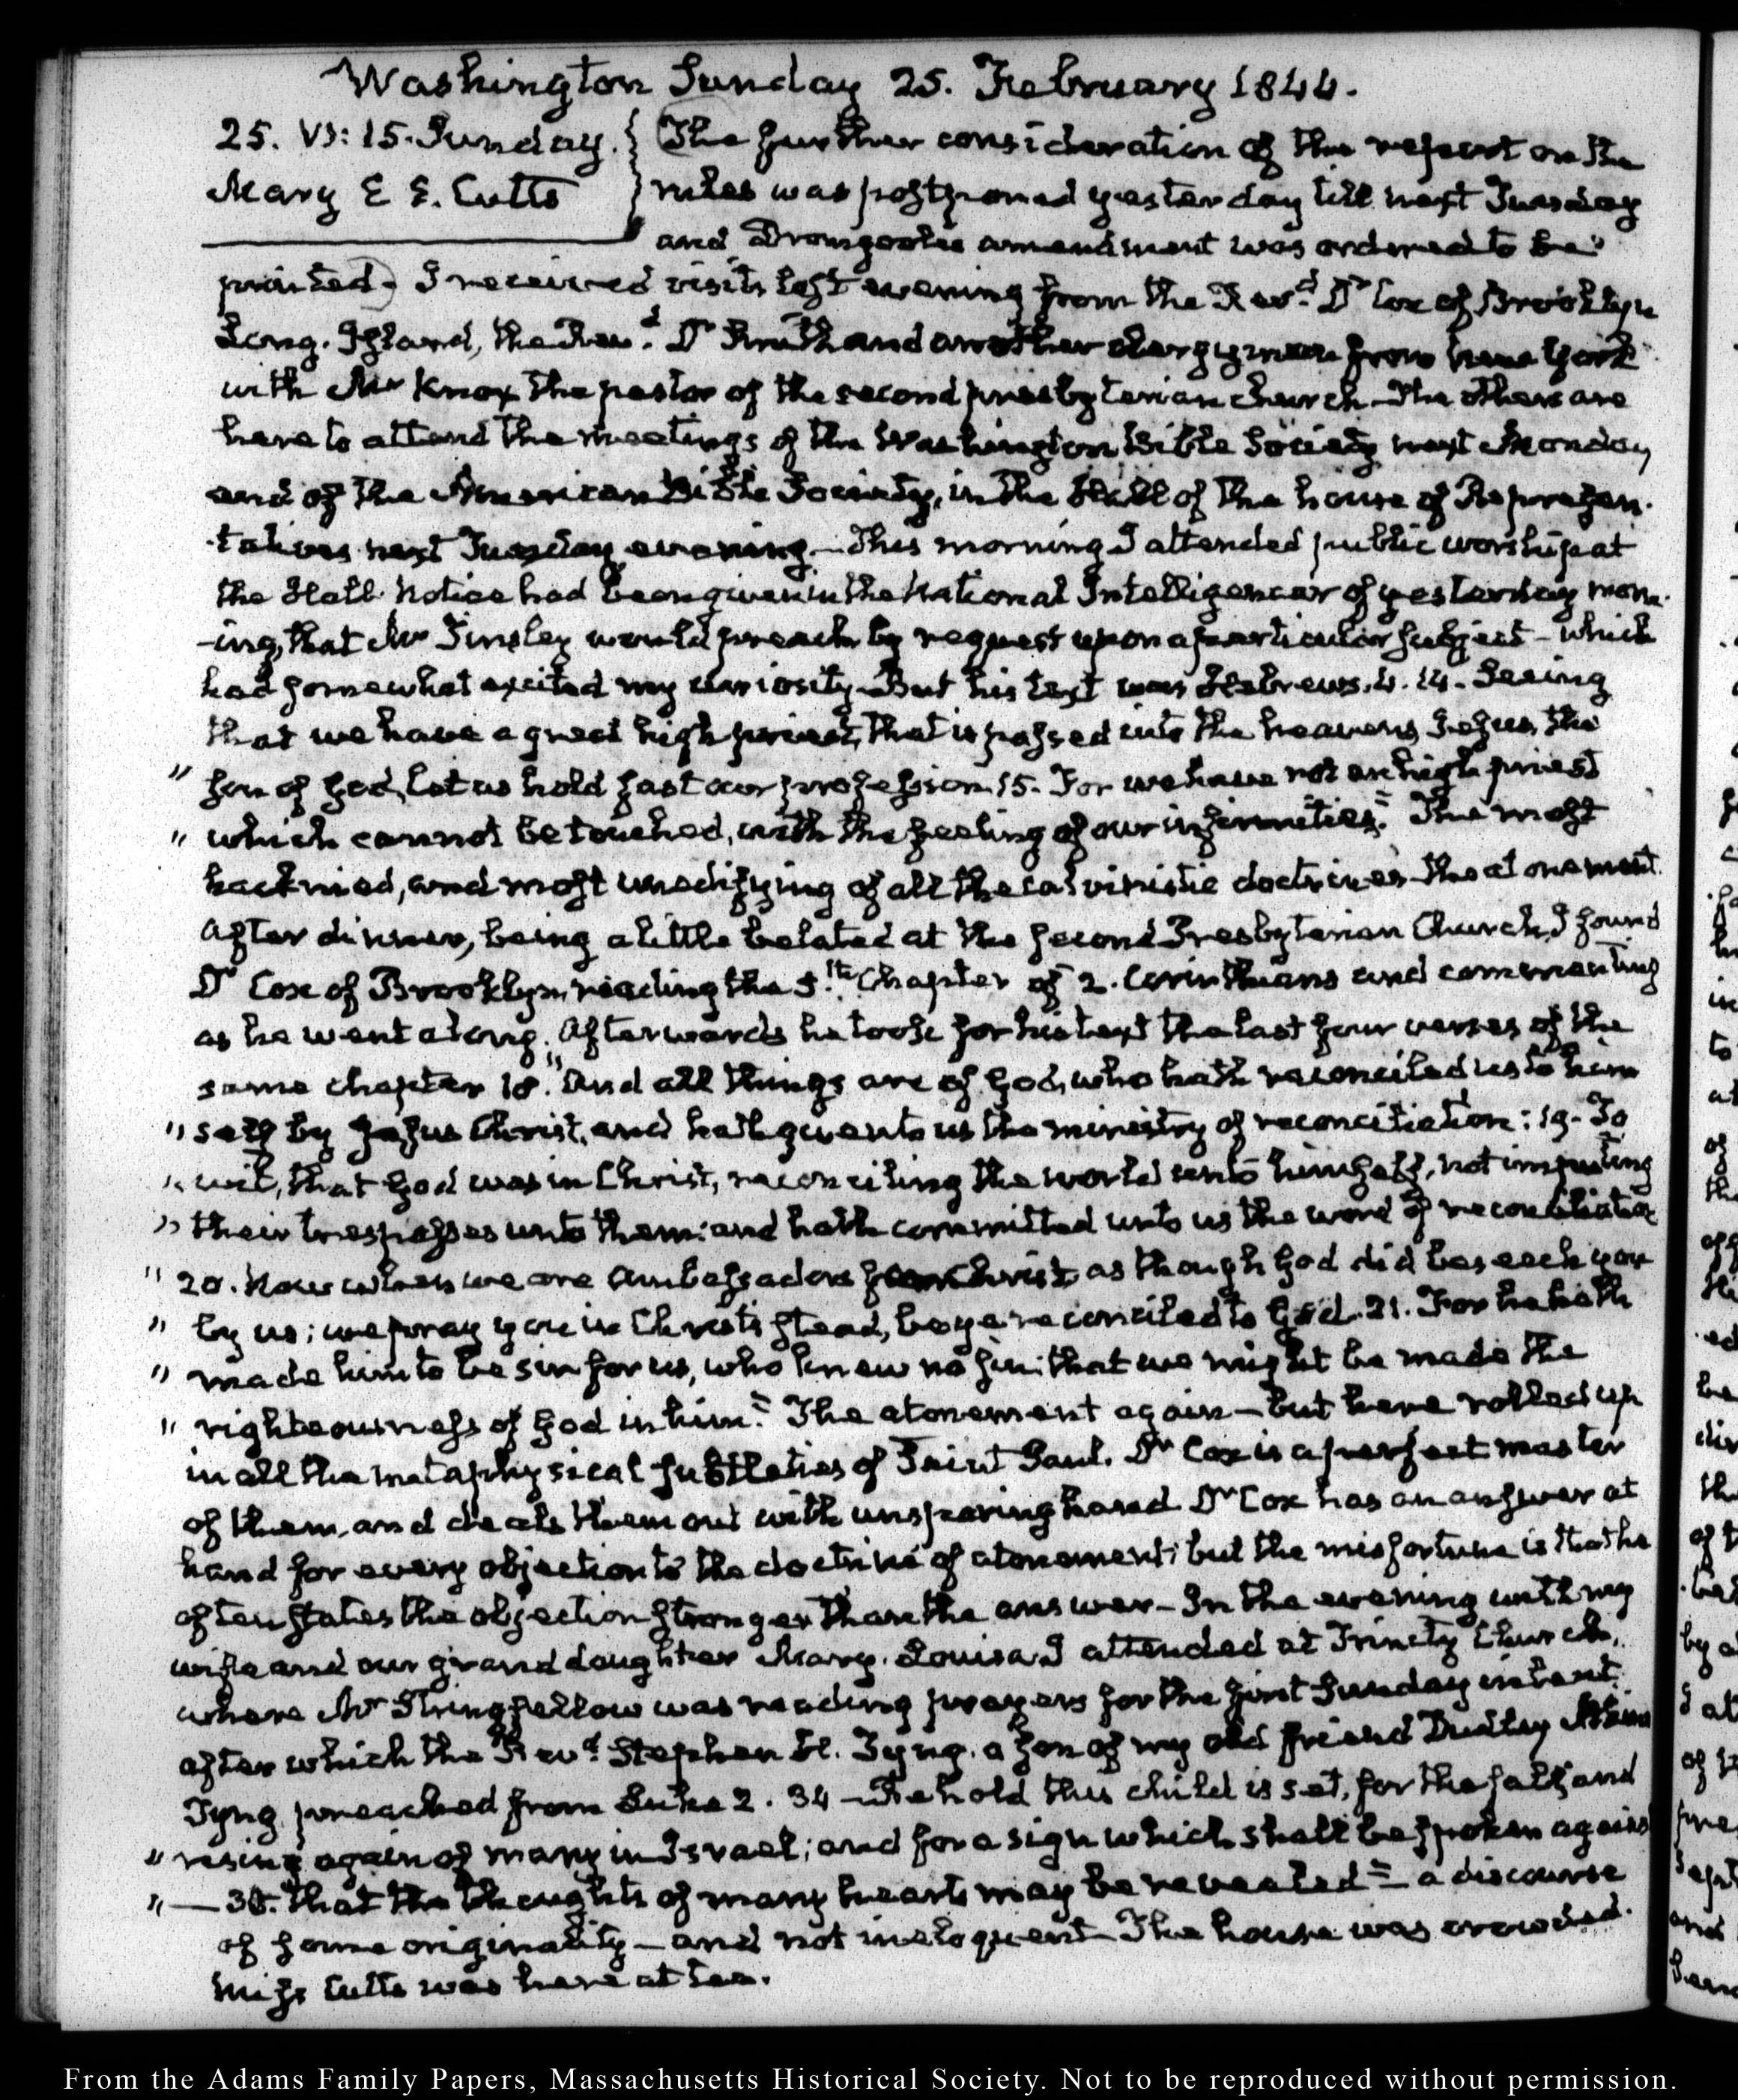 Washington Sunday 25. February 1844.
25. VI: 15. Sunday. { The further consideration of the report on the
Mary E E. Cutts } rules was postponed yesterday till next Tuesday
and Dromgoole's amendment was ordered to be
printed) I received visits last evening from the Revd. Dr Cox of Brooklyn
Long-Island, the Revd. Dr Smith and another clergyman from New York
with Mr Knox the pastor of the second presbyterian Church. The others are
here to attend the meetings of the Washington Bible Society next Monday
and of the American Bible Society, in the Hall of the house of Represen-
-tatives next Tuesday evening. This morning I attended public worship at
the Hall. Notice had been given in the National Intelligencer of yesterday morn-
-ing, that Mr Tinsley would preach by request upon a particular subject - which
had somewhat excited my curiosity. But his text was Hebrews. 4. 14. Seeing
that we have a great high priest, that is passed into the heavens Jesus, the
" son of God, let us hold fast our profession. 15. For we have not an high priest
" which cannot be touched, with the feeling of our infirmities." The most
hacknied, and most unedifying of all the Calvinistic doctrines the atonement.
After dinner, being a little belated at the second Presbyterian Church, I found
Dr Cox of Brooklyn, reading the 5.th Chapter of 2. Corinthians and commenting
as he went along. Afterwards he took for his text the last four verses of the
same chapter 18. "And all things are of God, who hath reconciled us to him
" self by Jesus Christ, and hath given to us the ministry of reconciliation: 19. To
" wit, that God was in Christ, reconciling the world unto himself, not imputing
" their trespasses unto them: and hath committed unto us the word of reconciliation
" 20. Now when we are Ambassadors for Christ as though God did beseech you
" by us; we pray you in Christ's stead, be ye reconciled to God. 21. For he hath
" made him to be sin for us, who knew no sin: that we might be made the
" righteousness of God in him." The atonement again - but here rolled up
in all the metaphysical subtleties of Saint Paul. Dr Cox is a perfect master
of them, and deals them out with unsparing hand Dr Cox has an answer at
hand for every objection to the doctrine of atonement; but the misfortune is that he
often states the objection stronger than the answer - In the evening with my
wife and our grand daughter Mary-Louisa I attended at Trinity Church,
where Mr Stringfellow was reading prayers for the first Sunday in Lent.
after which the Revd. Stephen H. Tyng. a son of my old friend Dudley Atkins
Tyng preached from Luke 2. 34 - Behold this child is set, for the fall and
" rising again of many in Israel; and for a sign which shall be spoken against
" — 35. that the thoughts of many hearts may be revealed" - a discourse
of some originality - and not ineloquent - The house was crowded.
Miss Cutts was here at tea.
From the Adams Family Papers, Massachusetts Historical Society. Not to be reproduced without permission.